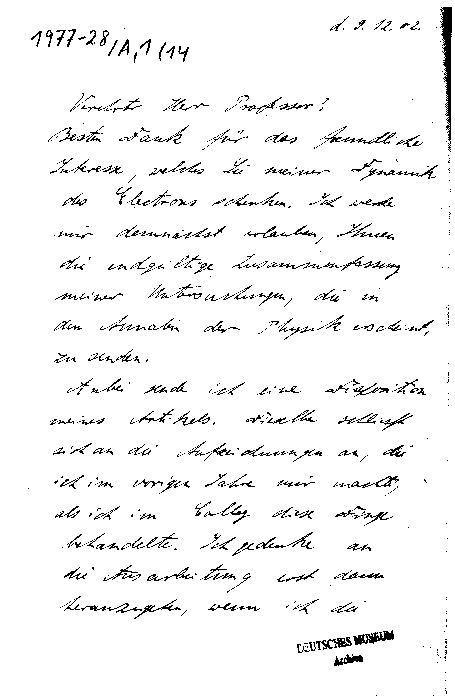 d. 9. 12. 02.
1977-28/A,1(14
Verehrter Herr Professor!
Besten Dank für das freundliche
Interesse, welches Sie meiner Dynamik
des Electrons schenken. Ich werde
mir demnächst erlauben, Ihnen
die endgültige Zusammenfassung
meiner Untersuchungen, die in
den Annalen der Physik erscheint,
zu senden.
Anbei sende ich eine Disposition
meines Artikels. Dieselbe schließt
sich an die Aufzeichnungen an, die
ich im vorigen Jahre mir machte,
als ich im Colleg diese Dinge
behandelte. Ich gedenke an
die Ausarbeitung erst dann
heranzugehen, wenn ich die
DEUTSCHES MUSEUM
Archiv